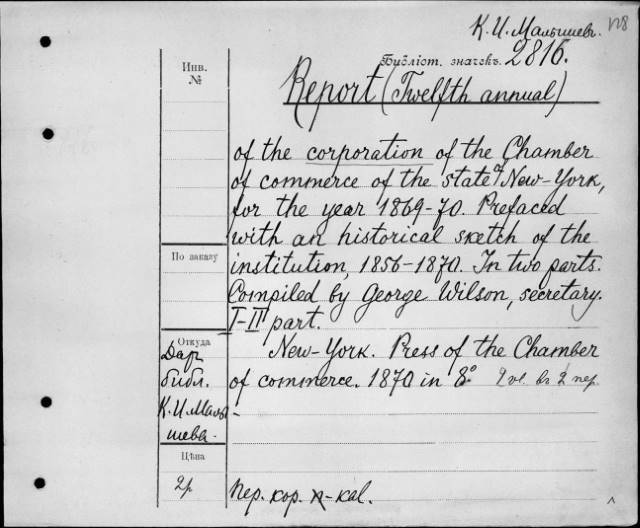 К. И. Малышевъ.
Библіот. значекъ. 2816.
Инв.
№
Report (Twelfth annual)
of the corporation of the Chamber
of commerce of the state of New-York,
for the year 1869-70. Prefaced
with an historical sketch of the
По заказу
institution, 1856-1870. In two parts.
Compiled by George Wilson, secretary.
I-II part.
Откуда
Даръ
библ.
К. И. Малы-
шева.
New-York. Press of the Chamber
of commerce. 1870 in 8.° въ 2 пер.
Цѣна
2 р
Пер. кор. -kal.